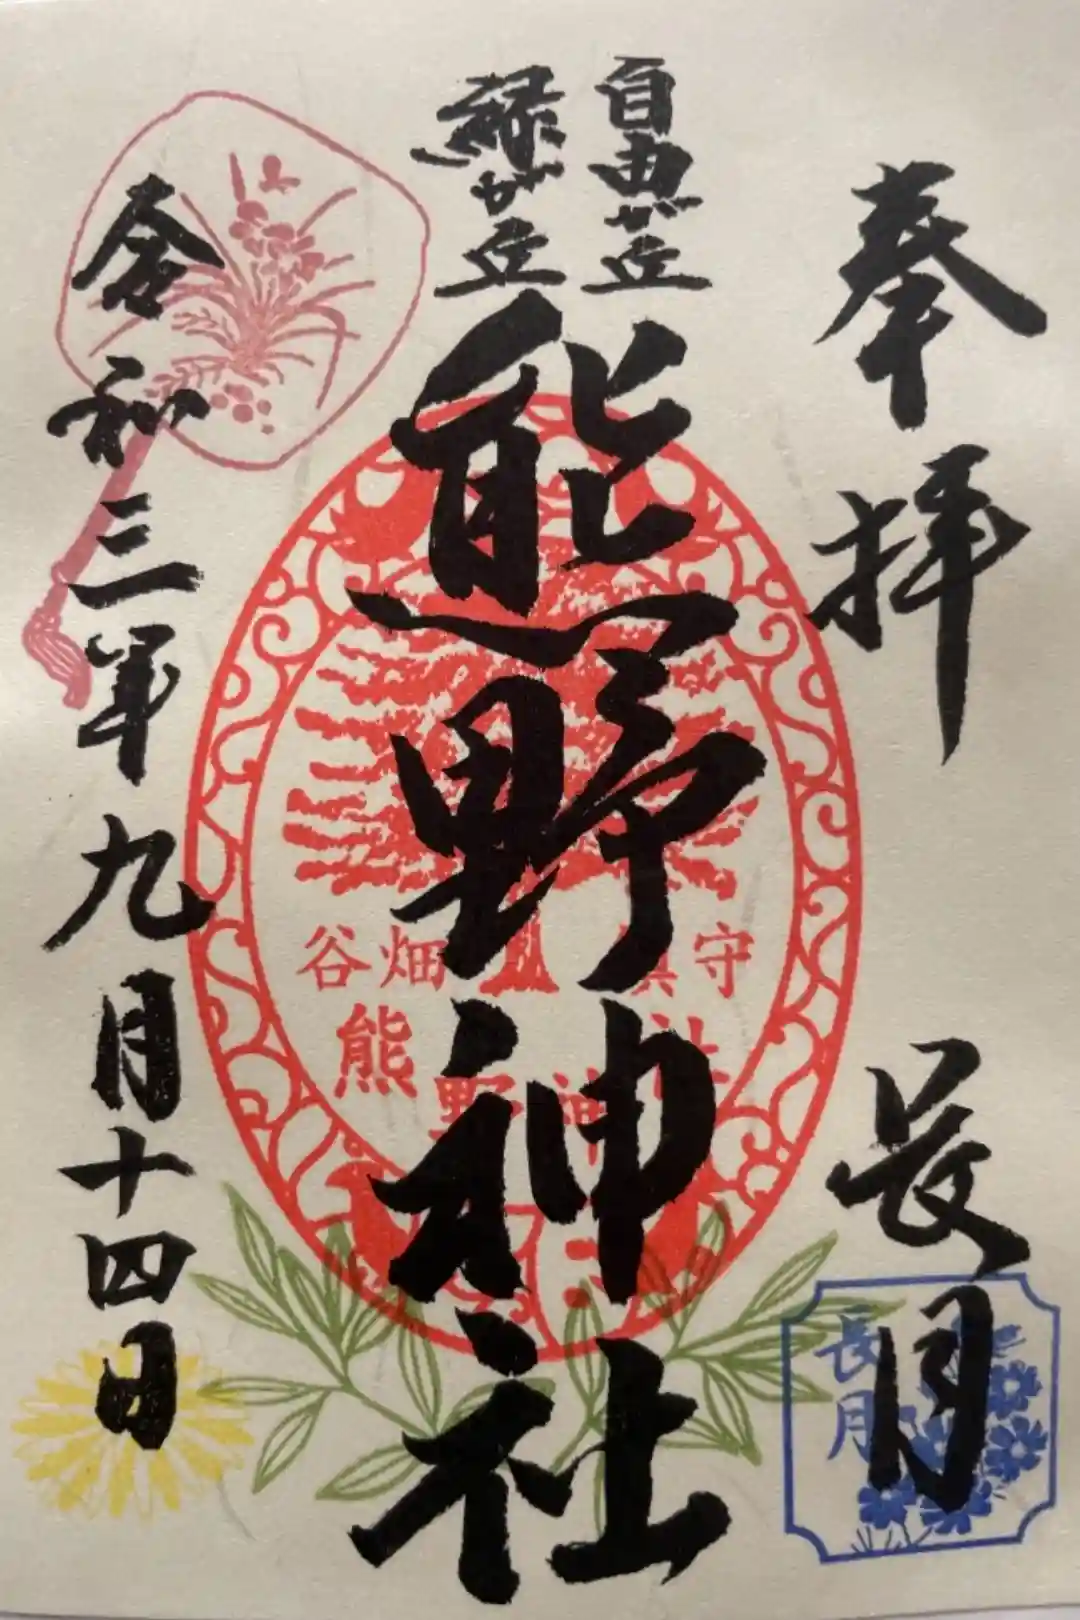 奉拝
長月
自由が丘
緑が丘
熊野神社
令和三年九月十四日
谷畑
守
熊野神社
長月